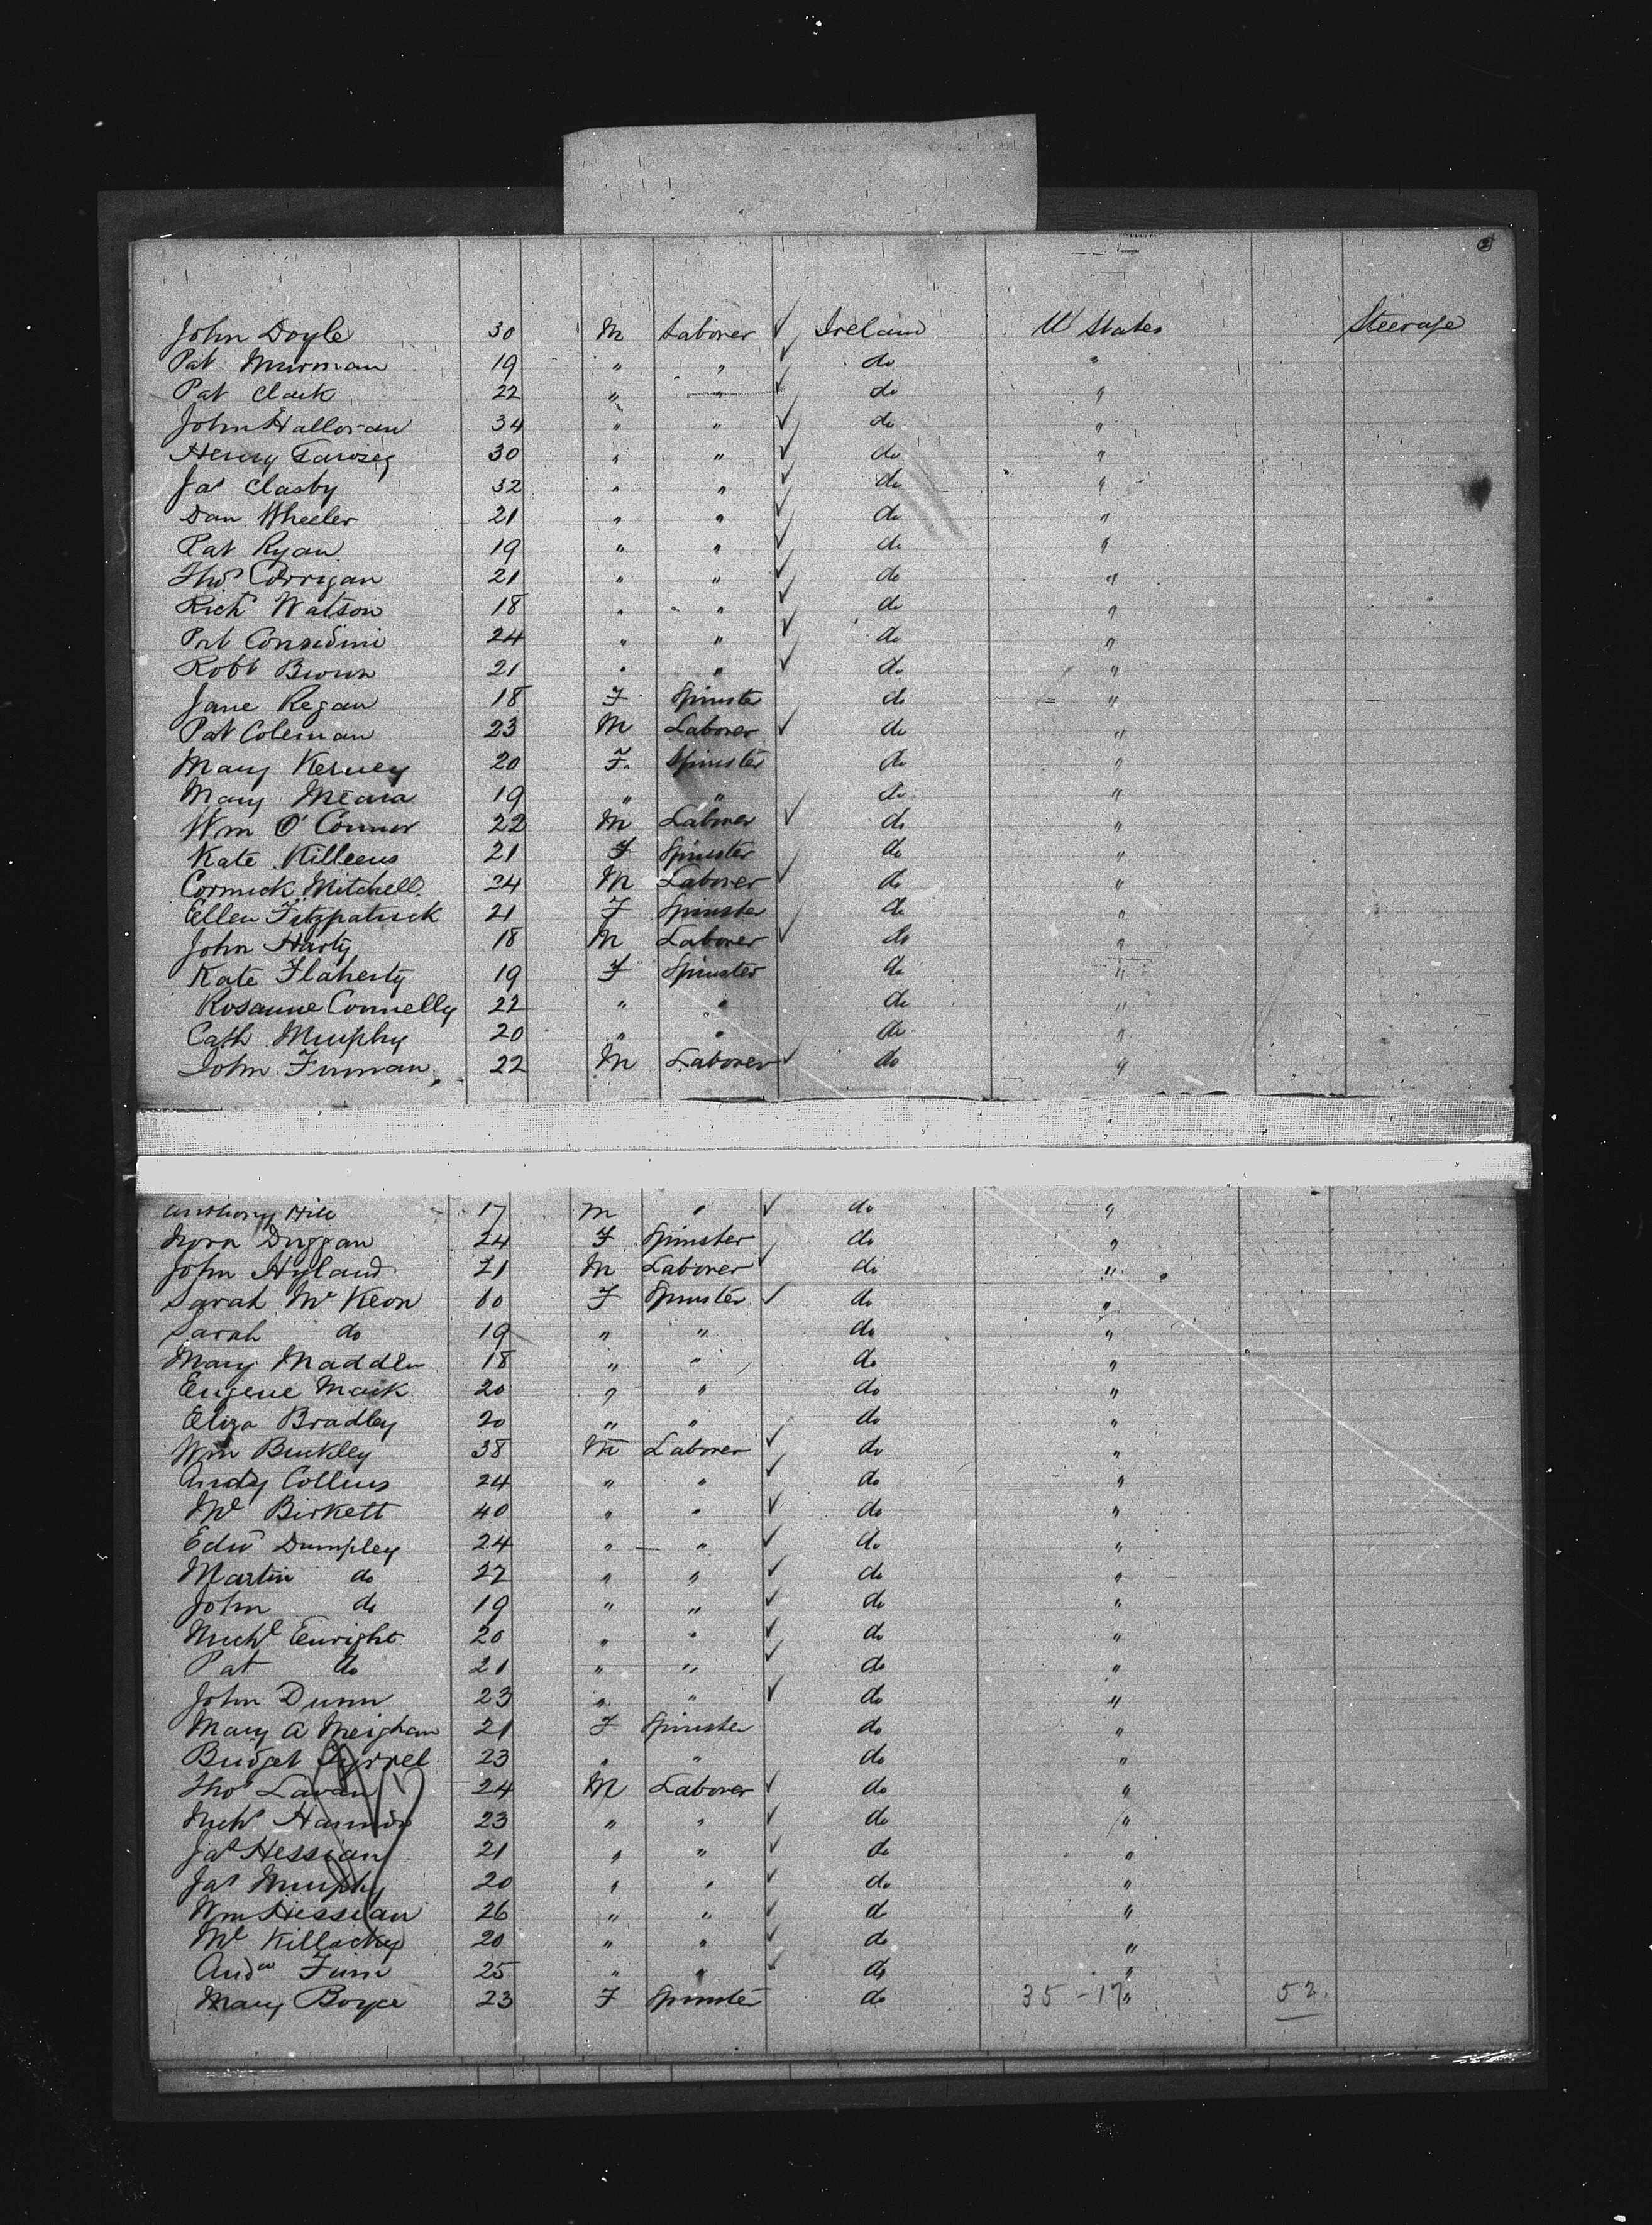 John Doyle 30 M Laborer ✓ Ireland U States Steerage
Pat 19 " " ✓ do "
Pat Clark 22 " " ✓ do "
John Halloran 34 " " ✓ do "
Henry 30 " " ✓ do "
Jas Clasby 32 " " ✓ do "
Dan Wheeler 21 " " ✓ do "
Pat Ryan 19 " " ✓ do "
Thos Corrigan 21 " " ✓ do "
Richd Watson 18 " " ✓ do "
Pat Considini 24 " " ✓ do "
Robt Brown 21 " " ✓ do "
Jane Regan 18 F Spinster do "
Pat Coleman 23 M Laborer ✓ do "
Mary Kerney 20 F. Spinster do "
Mary Meara 19 " " do "
Wm O'Connor 22 M Laborer ✓ do "
Kate Killeens 21 F Spinster do "
Cormick Mitchell 24 M Laborer ✓ do "
Ellen Fitzpatrick 21 F Spinster do "
John Harty 18 M Laborer ✓ do "
Kate Flaherty 19 F Spinster do "
Rosanne Connelly 22 " " do "
Cath Murphy 20 " " do "
John Finnan 22 M Laborer ✓ do "
Anthony Hill 17 M " ✓ do "
Nora Duggan 24 F Spinster do "
John Hyland 21 M Laborer ✓ do "
Sarah McKeon 60 F Spinster ✓ do "
Sarah do 19 " " do "
Mary Madden 18 " " do "
Eugene Mack 20 " " do "
Eliza Bradley 20 " " do "
Wm Buckley 38 M Laborer ✓ do "
Andy Collins 24 " " ✓ do "
Ml Birkett 40 " " ✓ do "
Edwd Dumpley 24 " " ✓ do "
Martin do 22 " " ✓ do "
John do 19 " " ✓ do "
Michl Enright 20 " " ✓ do "
Pat do 21 " " ✓ do "
John Dunn 23 " " ✓ do "
Mary A Meighan 21 F Spinster do "
Bridget Tyrrel 23 " " do "
Thos Lavan 24 M Laborer ✓ do "
Hannon 23 " " ✓ do "
Jas Hessian 21 " " ✓ do "
Jas Murphy 20 " " ✓ do "
Wm Hessian 26 " " ✓ do "
Ml Killacky 20 " " ✓ do "
Andw Finn 25 " " ✓ do "
Mary Boyce 23 F Spinster do 35-17 " 52.